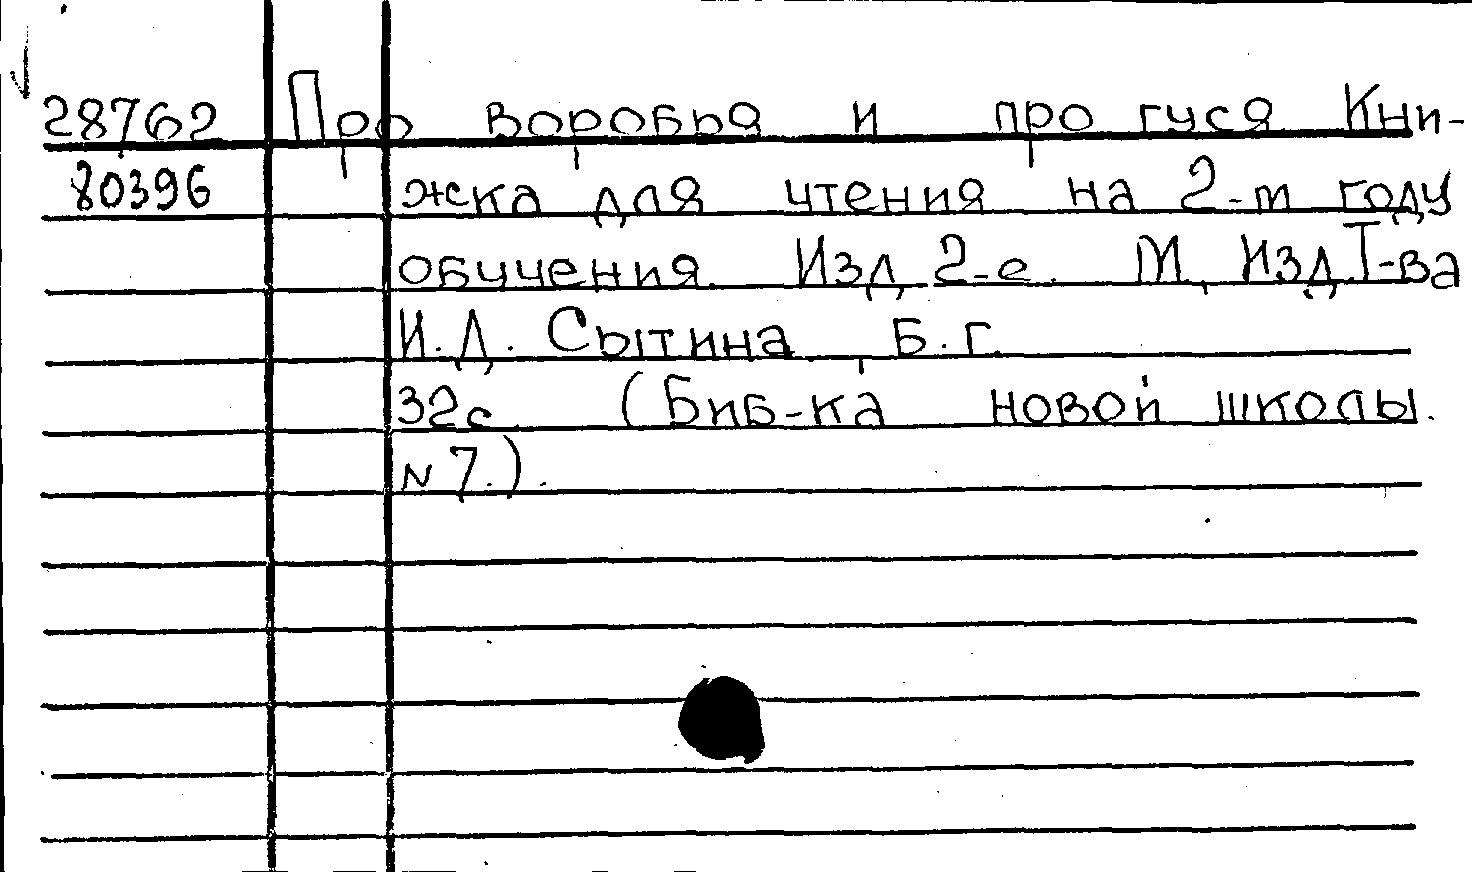 28762 Про воробья и про гуся Кни-
80396 жка для чтения на 2-м году
обучения. Изд. 2-е. М, Изд. Т-ва
И.Д. Сытина, Б.г.
32с (Биб-ка новой школы.
N 7.).